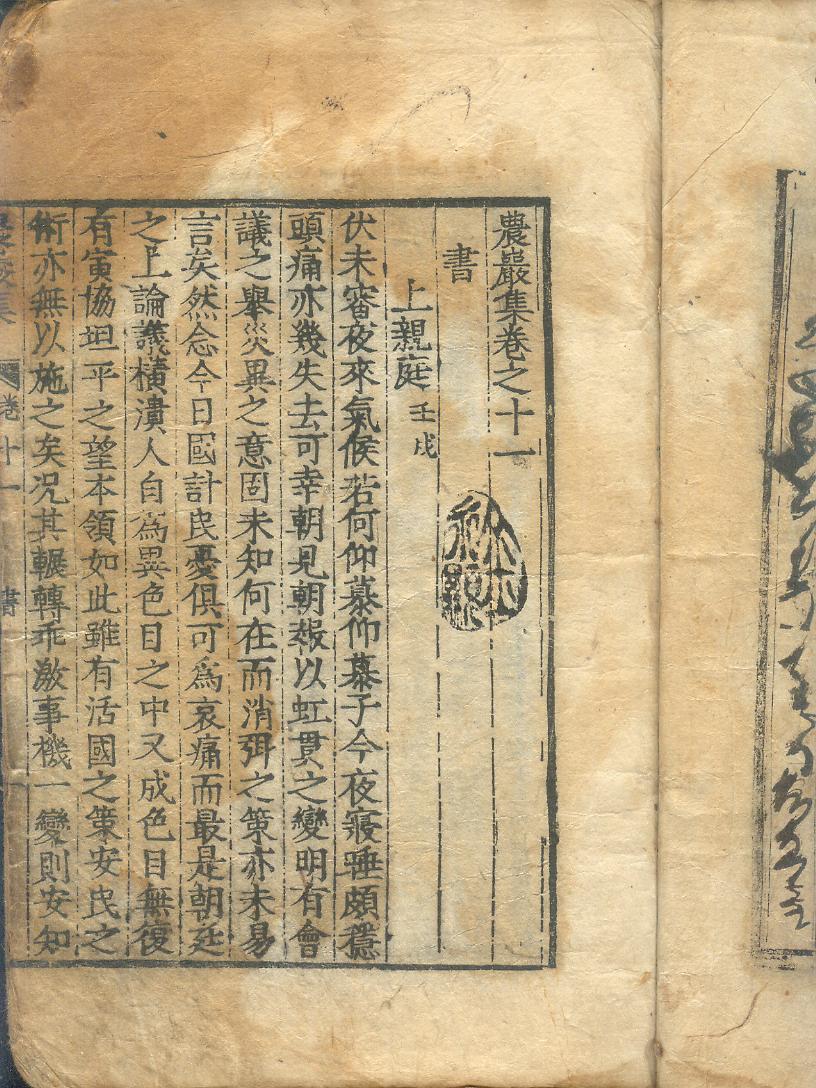 農巖集卷之十一
書
上親庭 壬戌
伏未審夜來氣候若何仰慕仰慕子今夜寢睡頗穩
頭痛亦幾失去可幸朝見朝報以虹貫之變明有會
議之舉災異之意固未知何在而消弭之策亦未易
言矣然念今日國計民憂俱可爲哀痛而最是朝廷
之上論議橫潰人自爲異色目之中又成色目無復
有寅協坦平之望本領如此雖有活國之策安民之
術亦無以施之矣况其輾轉乖激事機一變則安知
農巖集 卷十一 書